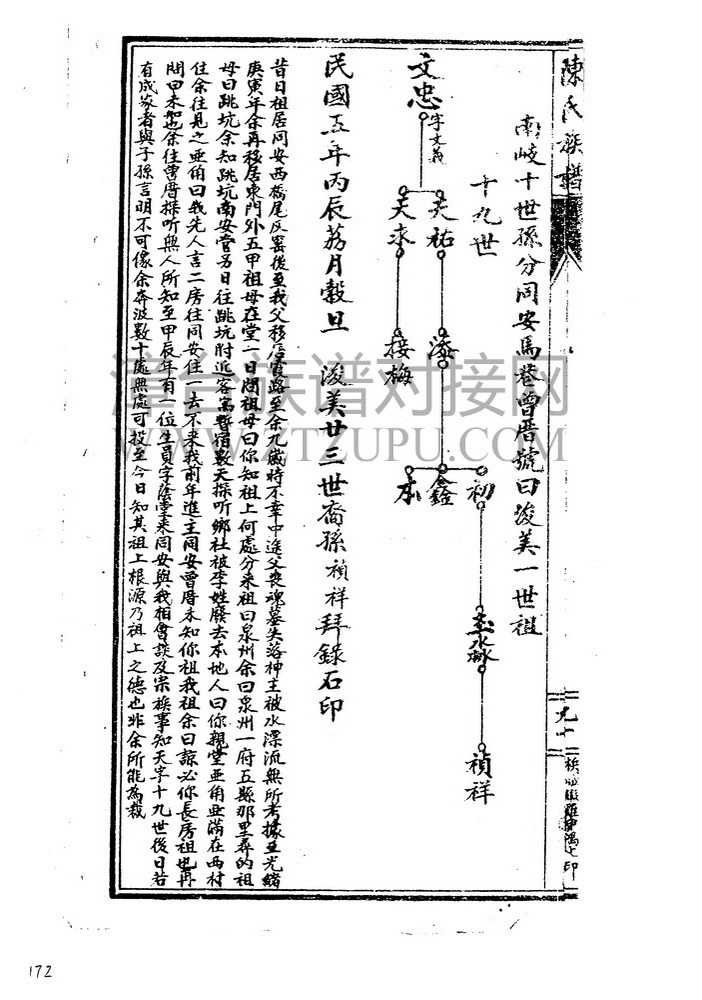 陳氏族譜
南岐十世孫分同安馬巷曾厝號曰浚美一世祖
十九世
文忠
字文義
天祐
天求
漆
接梅
初
鑫
本
水
禎祥
民國五年丙辰荔月穀旦 浚美廿三世裔孫禎祥拜錄石印
昔日祖居同安西橋尾灰窰後至我父移居霞路至余九歲時不幸中途父喪魂墓失落神主被水漂流無所考據至光緒
庚寅年余再移居東門外五甲祖母在堂一日問祖母曰你知祖上何處分來祖曰泉州余曰泉州一府五縣那里尋的祖
母曰跳坑余知跳坑南安管另日往跳坑附近客寓暫宿數天探听鄉社被李姓廢去本地人曰你親堂亜角亜滿在西村
住余往見之亜角曰我先人言二房往同安住一去不來我前年進主同安曾厝未知你祖我祖余曰諒必你長房祖也再
問曰未知也余往曾厝探听無人所知至甲辰年有一位生員字蔭堂來同安與我相會談及宗族事知天字十九世後日若
有成家者與子孫言明不可像余奔波數十處無處可投至今日知其祖上根源乃祖上之德也非余所能為哉
九十
津台族谱对接网
WWW.ZTZUPU.COM
172